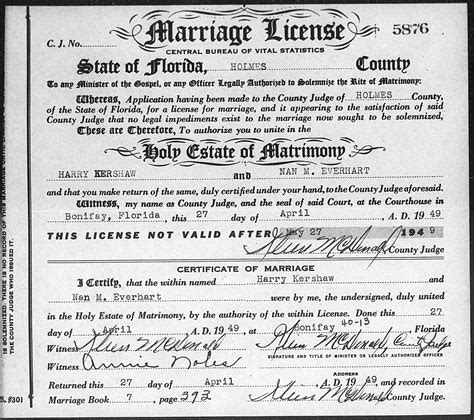 Marriage License
5876
C. J. No.
CENTRAL BUREAU OF VITAL STATISTICS
State of Florida, HOLMES County
To any Minister of the Gospel, or any Officer Legally Authorized to Solemnize the Rite of Matrimony:
Whereas, Application having been made to the County Judge of HOLMES County,
of the State of Florida, for a license for marriage, and it appearing to the satisfaction of said
County Judge that no legal impediments exist to the marriage now sought to be solemnized,
These are Therefore, To authorize you to unite in the
Holy Estate of Matrimony
HARRY KERSHAW and NAN M. EVERHART
and that you make return of the same, duly certified under your hand, to the County Judge aforesaid.
Witness, my name as County Judge, and the seal of said Court, at the Courthouse in
Bonifay, Florida this 27 day of April A. D. 19 49
THIS LICENSE NOT VALID AFTER May 27 194 9
County Judge
CERTIFICATE OF MARRIAGE
I Certify, that the within named Harry Kershaw
and Nan M. Everhart were by me, the undersigned, duly united
in the Holy Estate of Matrimony, by the authority of the within License. Done this 27
day of April A. D. 19 49, at Bonifay Florida
40-13
Witness
SIGNATURE AND TITLE OF MINISTER OR LEGALLY AUTHORIZED OFFICER
Witness Annie
Returned this 27 day of April A. D. 19 49
Marriage Book 7, page 393 County Judge
IS SOLEMNIZED. THERE IS NO RECORD OF THIS MARRIAGE
THE COUNTY JUDGE WHO ISSUED IT.
S. #301